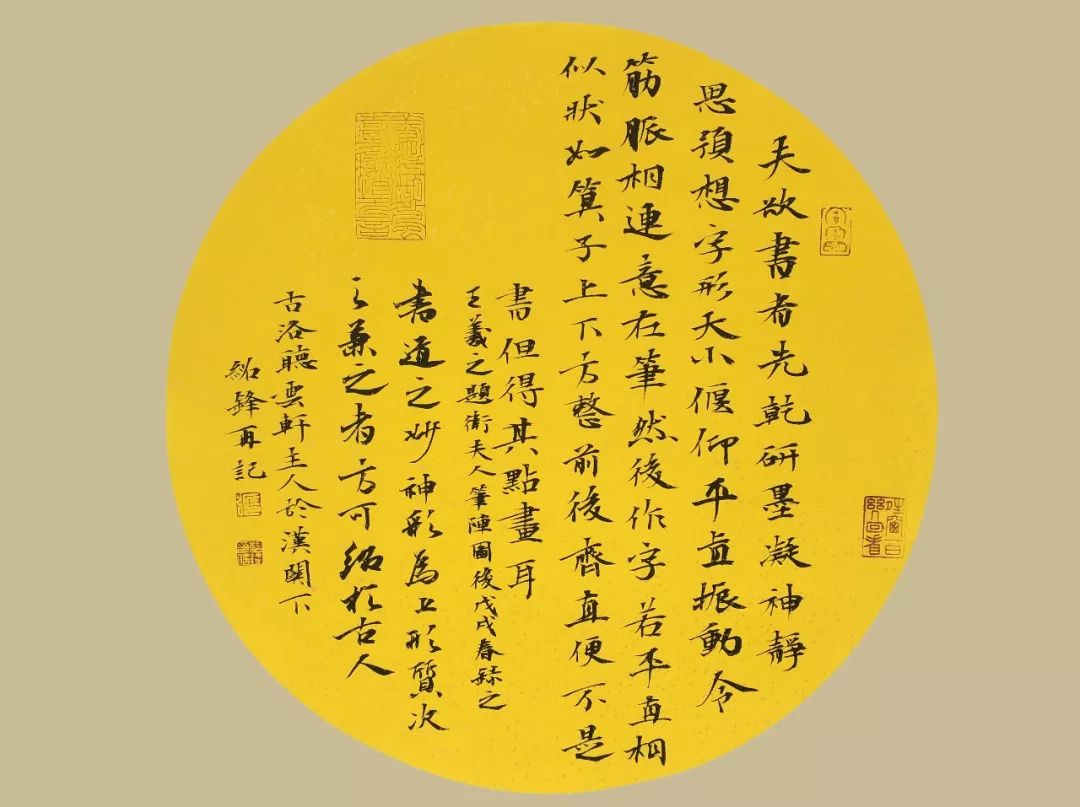 夫欲書者先乾研墨凝神靜
思預想字形大小偃仰平直振動令
筋脈相連意在筆然後作字若平直相
似狀如算子上下方整前後齊直便不是
書但得其點畫耳
王羲之題衛夫人筆陣圖後戊戌春録之
書道之妙神彩為上形質次
之兼之者方可紹於古人
古洛聽雲軒主人於漢關下
紹鋒再記